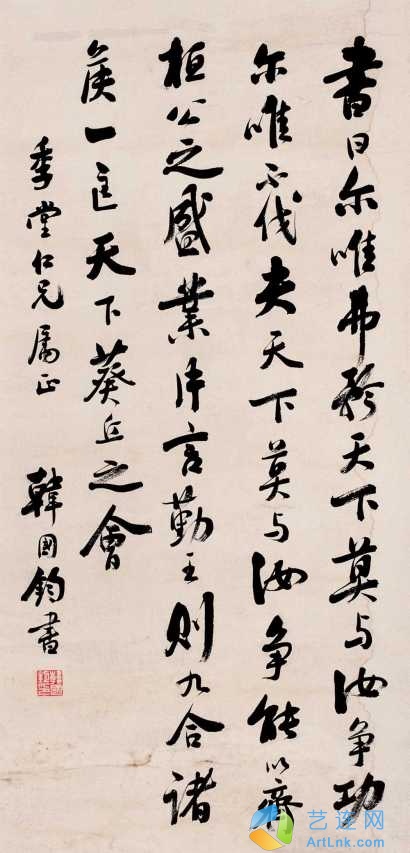 書曰尔唯弗矜天下莫与汝争功
尔唯不伐夫天下莫与汝争能以齊
桓公之盛業片言勤王則九合諸
侯一匡天下葵丘之會
季堂仁兄属正
韓國鈞書
艺连网
ArtLnk.com